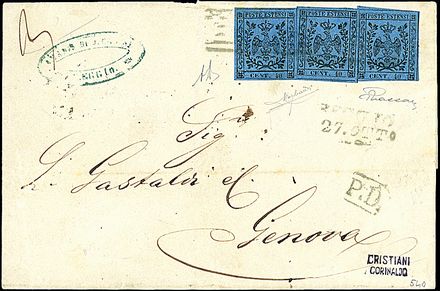 POSTE ESTENSI POSTE ESTENSI POSTE ESTENSI
CENT. 40 CENT. 40 CENT. 40
REGGIO
REGGIO
27. OTTO
Sig.
Gastaldi
P.D.
Genova
CRISTIANI
CORINALDO
540